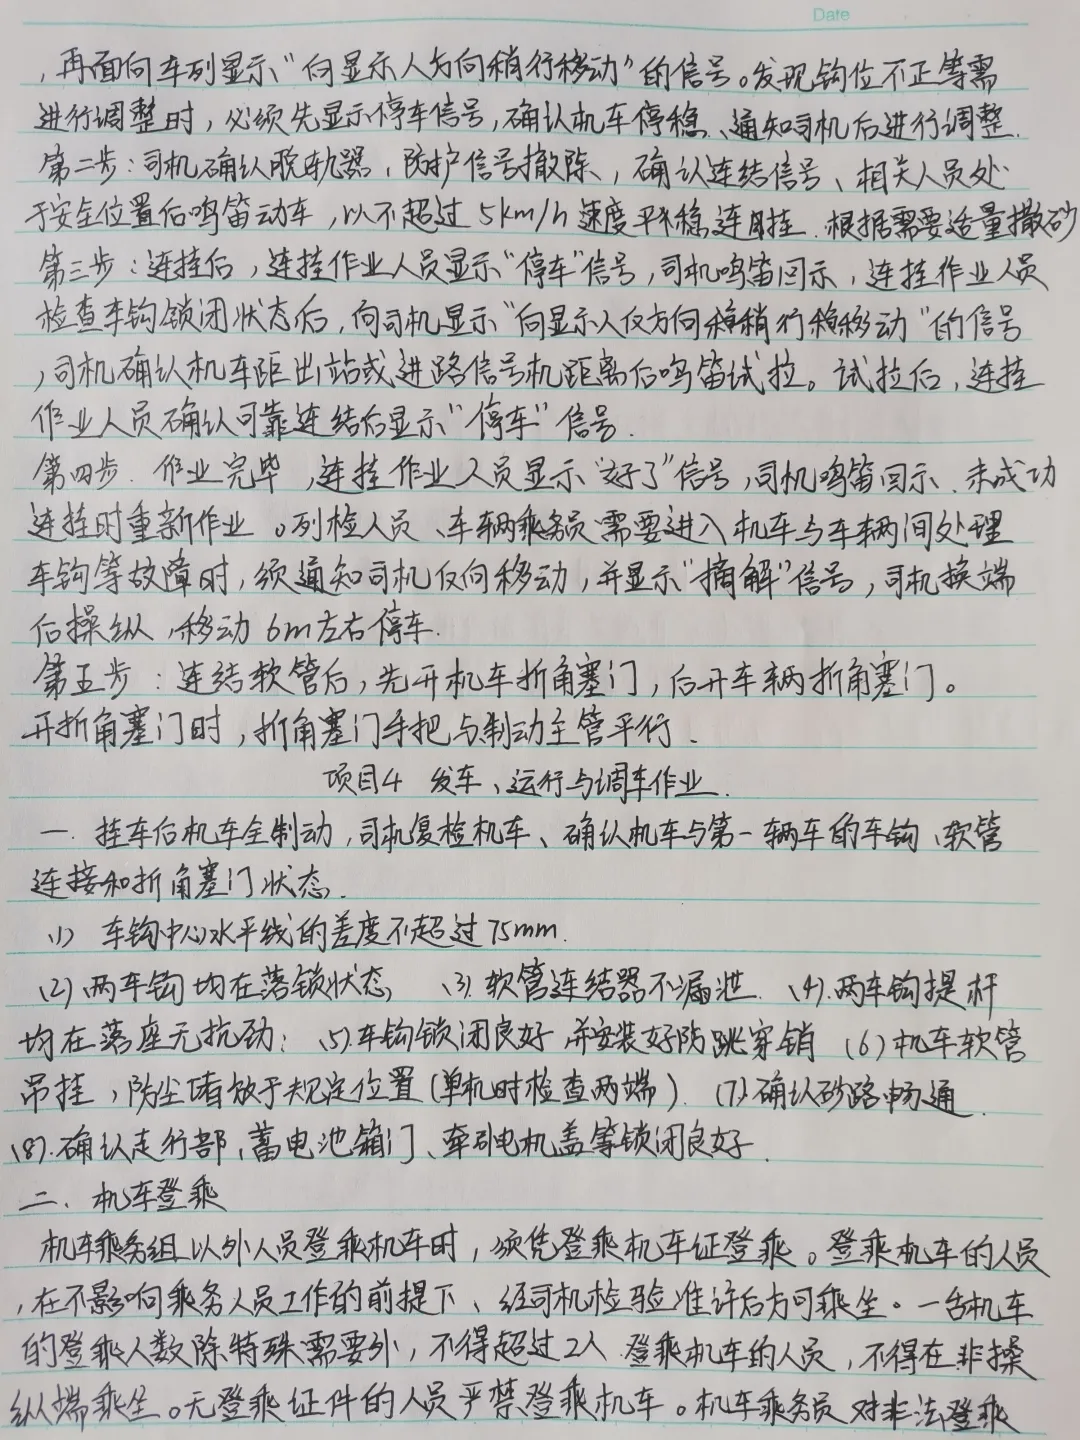 Date
，再面向车列显示“向显示人方向稍行移动”的信号。发现钩位不正等需
进行调整时，必须先显示停车信号，确认机车停稳、通知司机后进行调整.
第二步：司机确认脱轨器，防护信号撤除、，确认连结信号、相关人员处
于安全位置后鸣笛动车，以不超过5km/h速度平稳连挂.根据需要适量撒砂
第三步：连挂后，连挂作业人员显示“停车”信号，司机鸣笛回示，连挂作业人员
检查车钩锁闭状态后，向司机显示“向显示人反方向稍行移动”的信号
，司机确认机车距出站或进路信号机距离后鸣笛试拉。试拉后，连挂
作业人员确认可靠连结后显示“停车”信号.
第四步.作业完毕，连挂作业人员显示“好了”信号，司机鸣笛回示.未成功
连挂时重新作业。列检人员、车辆乘务员需要进入机车与车辆间处理
车钩等故障时，须通知司机反向移动，并显示“摘解”信号，司机换端
后操纵，移动6m左右停车.
第五步：连结软管后，先开机车折角塞门，后开车辆折角塞门。
开折角塞门时，折角塞门手把与制动主管平行.
项目4 发车、运行与调车作业.
一.挂车后机车全制动，司机复检机车、确认机车与第一辆车的车钩、软管
连接和折角塞门状态.
(1) 车钩中心水平线的差度不超过75mm.
(2)两车钩均在落锁状态 (3).软管连结器不漏泄. (4).两车钩提杆
均在落座无抗劲； (5).车钩锁闭良好并安装好防跳穿销 (6)机车软管
吊挂，防尘堵放于规定位置(单机时检查两端). (7).确认砂路畅通.
(8).确认走行部、蓄电池箱门、牵引电机盖等锁闭良好.
二.机车登乘
机车乘务组以外人员登乘机车时，须凭登乘机车证登乘。登乘机车的人员
，在不影响乘务人员工作的前提下、经司机检验准许后方可乘坐。一台机车
的登乘人数除特殊需要外，不得超过2人.登乘机车的人员，不得在非操
纵端乘坐。无登乘证件的人员严禁登乘机车。机车乘务员对非法登乘